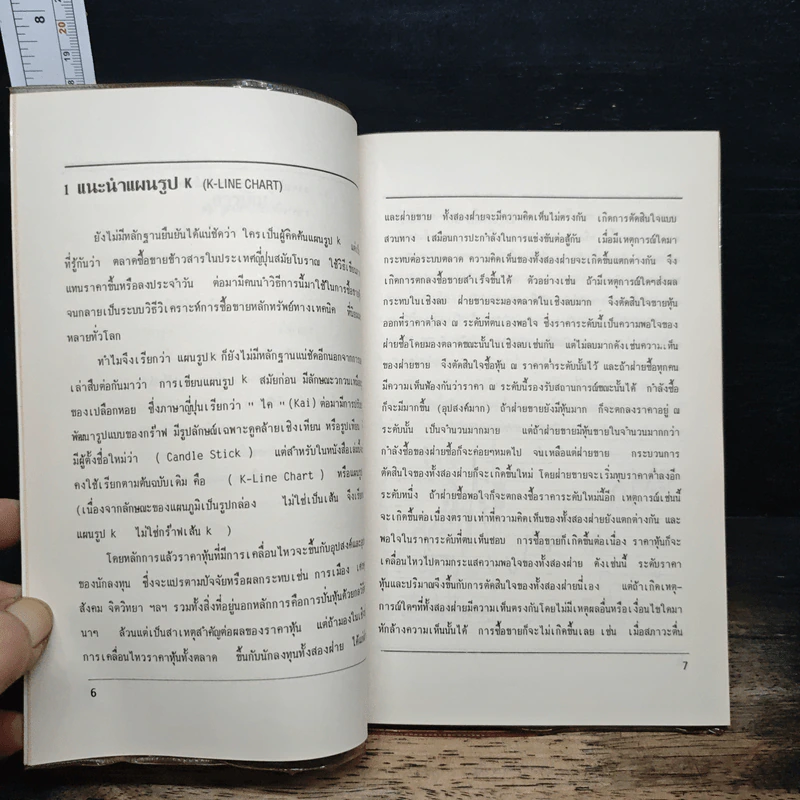 8
20
19
18
1 แนะนำแผนรูป K (K-LINE CHART)
ยังไม่มีหลักฐานยืนยันได้แน่ชัดว่า ใครเป็นผู้คิดค้นแผนรูป k
ที่รู้กันว่า ตลาดซื้อขายข้าวสารในประเทศญี่ปุ่นสมัยโบราณ ใช้วิธีเขียน
แทนราคาขึ้นหรือลงประจำวัน ต่อมามีคนนำวิธีการนี้มาใช้ในการซื้อขาย
จนกลายเป็นระบบวิธีวิเคราะห์การซื้อขายหลักทรัพย์ทางเทคนิค ที่นิยม
หลายทั่วโลก
ทำไมจึงเรียกว่า แผนรูป k ก็ยังไม่มีหลักฐานแน่ชัดอีกนอกจากการ
เล่าสืบต่อกันมาว่า การเขียนแผนรูป k สมัยก่อน มีลักษณะวกวนเหมือน
ของเปลือกหอย ซึ่งภาษาญี่ปุ่นเรียกว่า " ไค " (Kai) ต่อมามีการ
พัฒนารูปแบบของกร๊าฟ มีรูปลักษณ์เฉพาะดูคล้ายเชิงเทียน หรือรูปเทียน
มีผู้ตั้งชื่อใหม่ว่า ( Candle Stick ) แต่สำหรับในหนังสือเล่มนี้
คงใช้เรียกตามต้นฉบับเดิม คือ ( K-Line Chart ) หรือแผนรูป
(เนื่องจากลักษณะของแผนภูมิเป็นรูปกล่อง ไม่ใช่เป็นเส้น จึงเรียก
แผนรูป k ไม่ใช่กร๊าฟเส้น k )
โดยหลักการแล้วราคาหุ้นที่มีการเคลื่อนไหวจะขึ้นกับอุปสงค์และ
ของนักลงทุน ซึ่งจะแปรตามปัจจัยหรือผลกระทบเช่น การเมือง
สังคม จิตวิทยา ฯลฯ รวมทั้งสิ่งที่อยู่นอกหลักการคือการปั่นหุ้นด้วยกลวิธี
นาๆ ล้วนแต่เป็นสาเหตุสำคัญต่อผลของราคาหุ้น แต่ถ้ามองในเชิง
การเคลื่อนไหวราคาหุ้นทั้งตลาด ขึ้นกับนักลงทุนทั้งสองฝ่าย ได้แก่
6
และฝ่ายขาย ทั้งสองฝ่ายจะมีความคิดเห็นไม่ตรงกัน เกิดการตัดสินใจแบบ
สวนทาง เสมือนการปะกำลังในการแข่งขันต่อสู้กัน เมื่อมีเหตุการณ์ใดมา
กระทบต่อระบบตลาด ความคิดเห็นของทั้งสองฝ่ายจะเกิดขึ้นแตกต่างกัน จึง
เกิดการตกลงซื้อขายสำเร็จขึ้นได้ ตัวอย่างเช่น ถ้ามีเหตุการณ์ใดๆส่งผล
กระทบในเชิงลบ ฝ่ายขายจะมองตลาดในเชิงลบมาก จึงตัดสินใจขายหุ้น
ออกที่ราคาต่ำลง ณ ระดับที่ตนเองพอใจ ซึ่งราคาระดับนี้เป็นความพอใจของ
ฝ่ายซื้อโดยมองตลาดขณะนั้นในเชิงลบเช่นกัน แต่ไม่ลบมากดังเช่นความเห็น
ของฝ่ายขาย จึงตัดสินใจซื้อหุ้น ณ ราคาต่ำระดับนั้นไว้ และถ้าฝ่ายซื้อทุกคน
มีความเห็นพ้องกันว่าราคา ณ ระดับนี้รองรับสถานการณ์ขณะนั้นได้ กำลังซื้อ
ก็จะมีมากขึ้น (อุปสงค์มาก) ถ้าฝ่ายขายยังมีหุ้นมาก ก็จะตกลงราคาอยู่ ณ
ระดับนั้น เป็นจำนวนมากมาย แต่ถ้าฝ่ายขายมีหุ้นขายในจำนวนมากกว่า
กำลังซื้อของฝ่ายซื้อก็จะค่อยๆหมดไป จนเหลือแต่ฝ่ายขาย กระบวนการ
ตัดสินใจของทั้งสองฝ่ายก็จะเกิดขึ้นใหม่ โดยฝ่ายขายจะเริ่มทุบราคาต่ำลงอีก
ระดับหนึ่ง ถ้าฝ่ายซื้อพอใจก็จะตกลงซื้อราคาระดับใหม่นี้อีก เหตุการณ์เช่นนี้
จะเกิดขึ้นต่อเนื่องตราบเท่าที่ความคิดเห็นของทั้งสองฝ่ายยังแตกต่างกัน และ
พอใจในราคาระดับที่ตนเห็นชอบ การซื้อขายก็เกิดขึ้นต่อเนื่อง ราคาหุ้นก็จะ
เคลื่อนไหวไปตามกระแสความพอใจของทั้งสองฝ่าย ดังเช่นนี้ ระดับราคา
หุ้นและปริมาณจึงขึ้นกับการตัดสินใจของทั้งสองฝ่ายนี่เอง แต่ถ้าเกิดเหตุ-
การณ์ใดๆที่ทั้งสองฝ่ายมีความเห็นตรงกันโดยไม่มีเหตุผลอื่นหรือเงื่อนไขใดมา
หักล้างความเห็นนั้นได้ การซื้อขายก็จะไม่เกิดขึ้นเลย เช่น เมื่อสภาวะตื่น
7